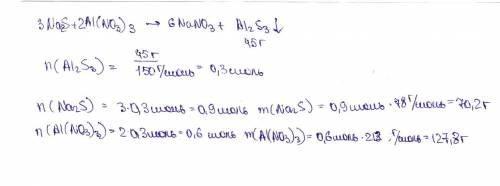 3Na₂S+2Al(NO₃)₃ → 6NaNO₃ + Al₂S₃↓
45г
n(Al₂S₃) = 45г / 150г/моль = 0,3моль
n(Na₂S) = 3·0,3моль=0,9моль m(Na₂S) = 0,9моль·78г/моль=70,2г
n(Al(NO₃)₃)=2·0,3моль=0,6 моль m(Al(NO₃)₃)=0,6моль·213 г/моль=127,8г